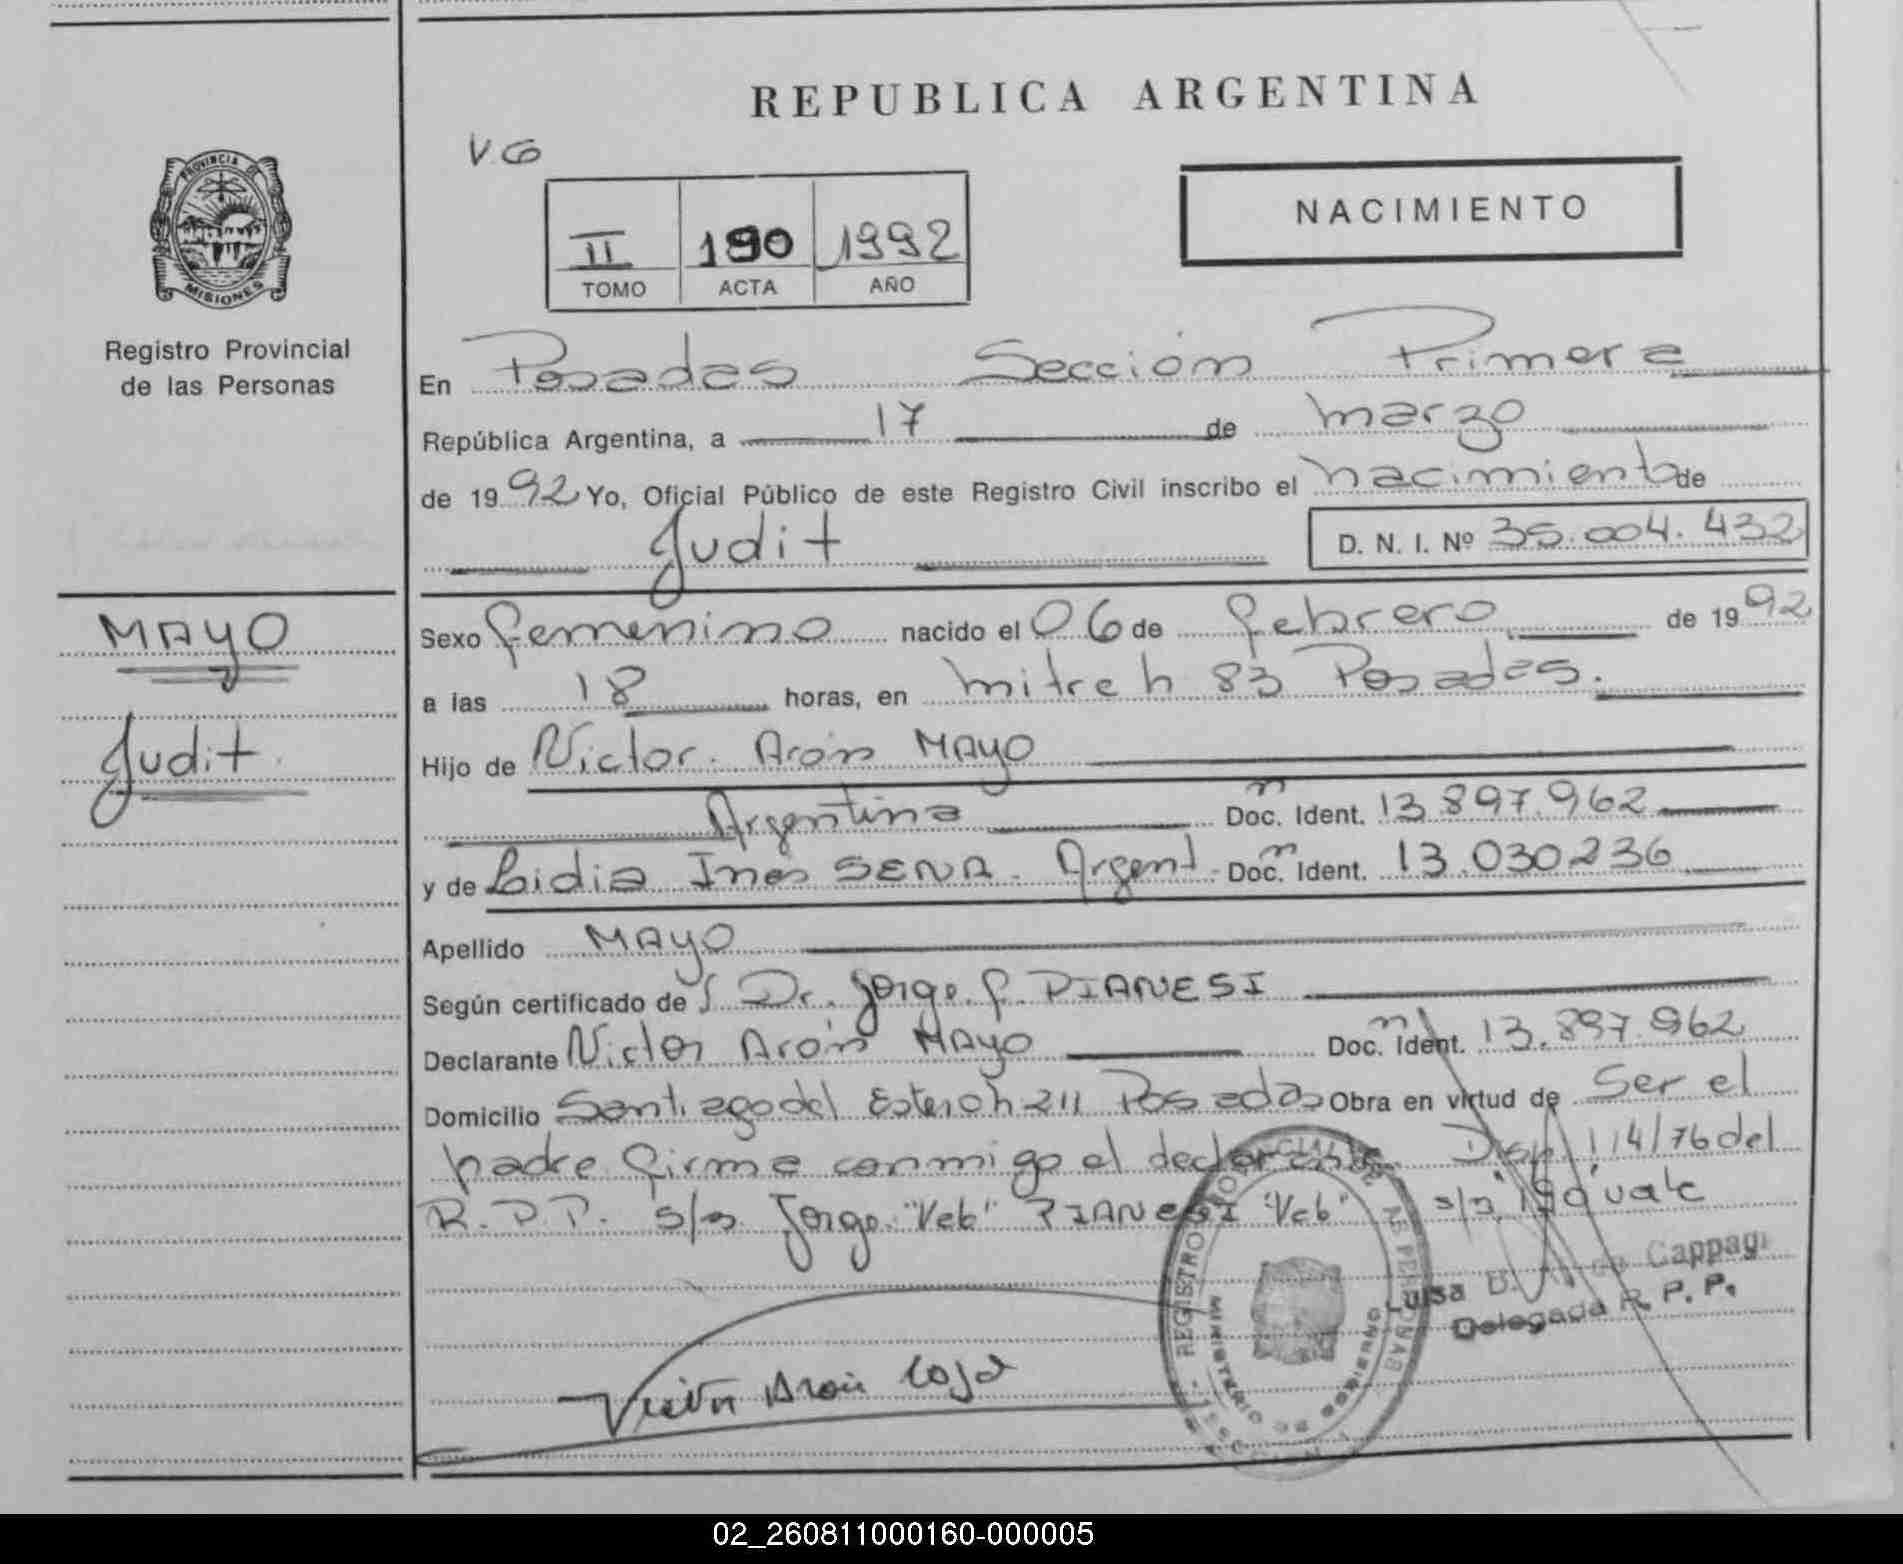 REPUBLICA ARGENTINA
VG
NACIMIENTO
II 190 1992
TOMO ACTA AÑO
PROVINCIA DE
MISIONES
Registro Provincial
de las Personas
En Posadas Sección Primera
República Argentina, a 17 de marzo
de 1992 Yo, Oficial Público de este Registro Civil inscribo el nacimiento de
Judit D. N. I. Nº 35.004.432
MAYO
Judit.
Sexo femenino nacido el 06 de febrero de 1992
a las 18 horas, en mitre n 83 Posadas.
Hijo de Victor. Arón MAYO
Argentina Doc. Ident. 13.897.962
y de Lidia Inés SENA. Argent. Doc. Ident. 13.030236
Apellido MAYO
Según certificado de Dr. Jorge. f. PIANESI
Declarante Victor Arón MAYO Doc. Ident. 13.897.962
Domicilio Santiago del Estero n 211 Posadas Obra en virtud de Ser el
padre firma conmigo el declarante Disp. 114/76 del
R.P.P. s/s Jorge. "Veb" PIANESI "Veb" s/s, 190 vale
Luisa B. de Cappagi
Delegada R. P. P.
REGISTRO PROVINCIAL DE PERSONAS
MINISTERIO DE GOBIERNO
02_260811000160-000005